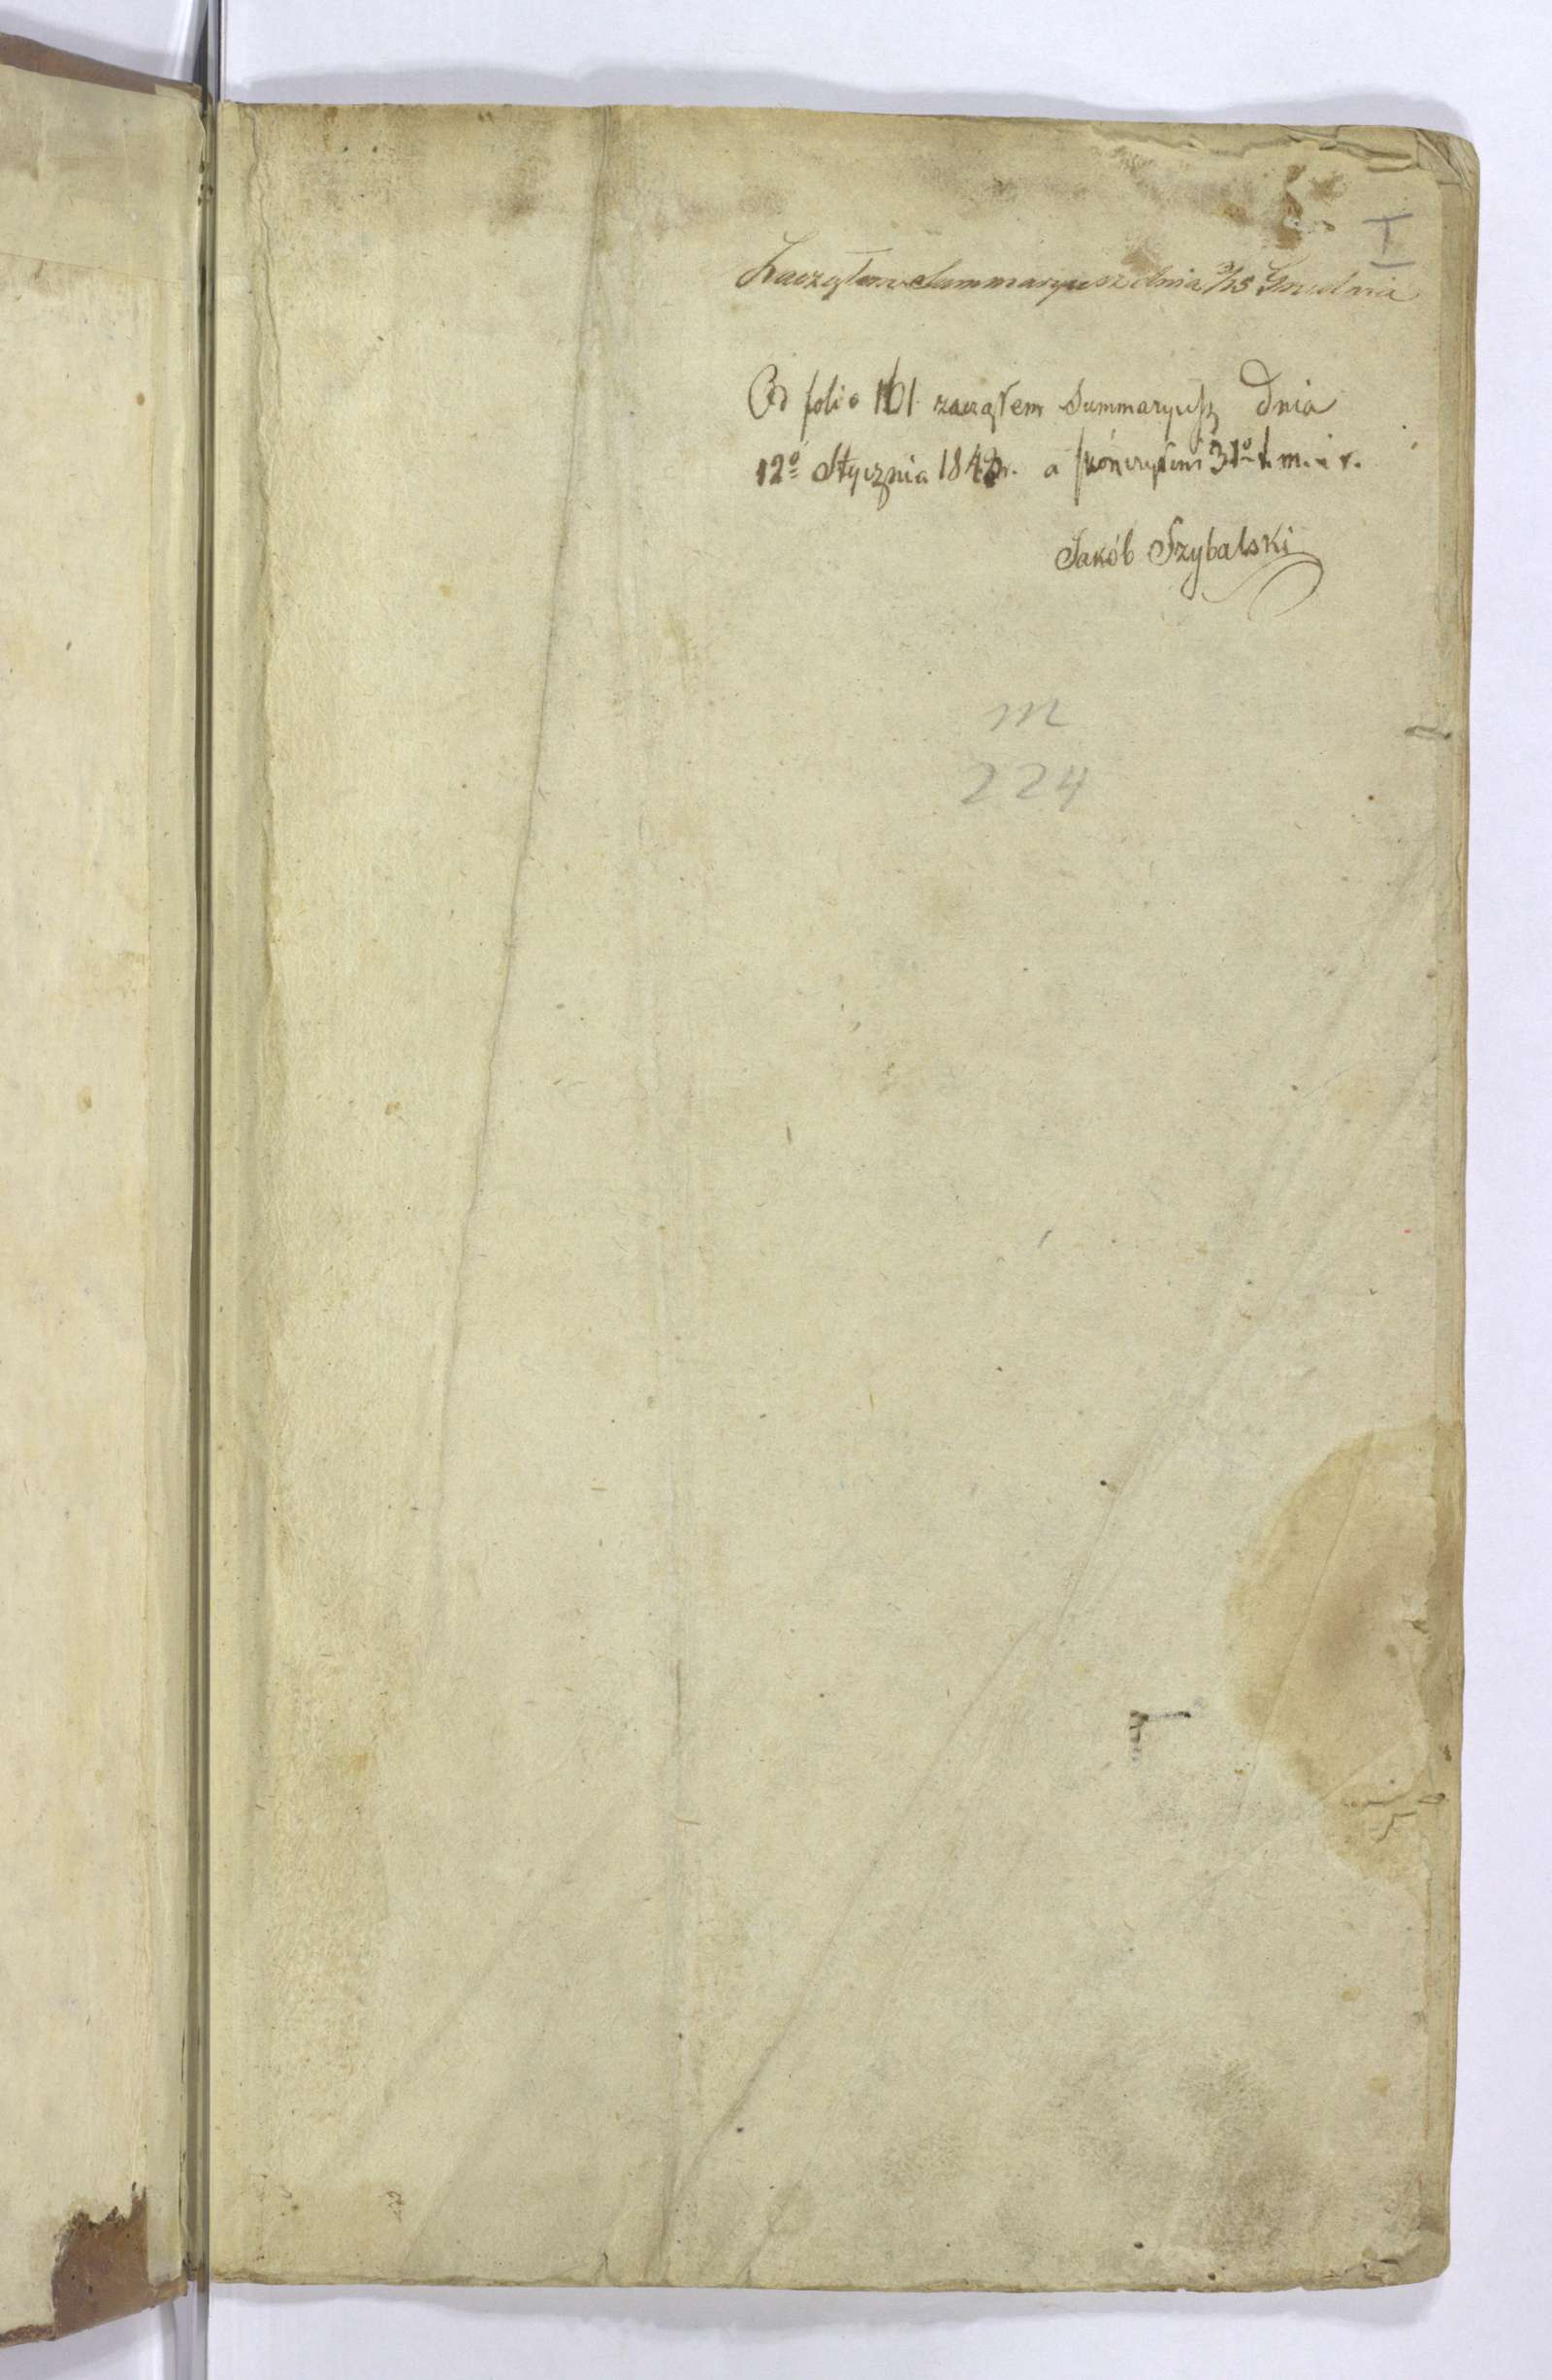 I
Zacząłem Summaryusz dnia 3/15 Grudnia
Od folio 161 zacząłem Summaryusz Dnia
12º Stycznia a skończyłem 31º t. m. i r.
Jakób Szybalski
m
224